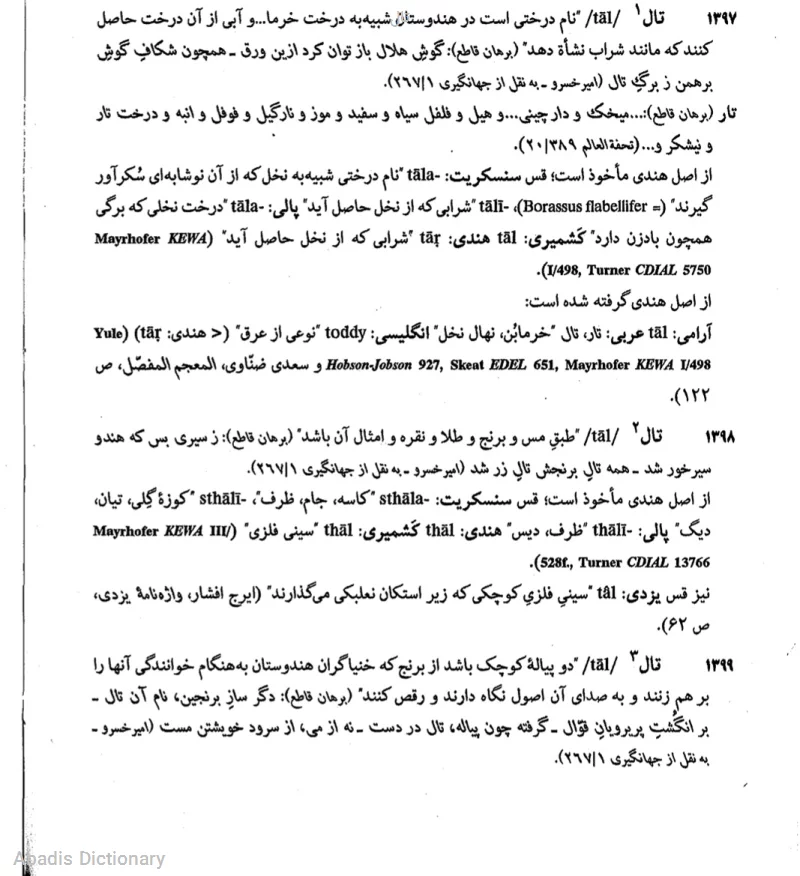 ۱۳۹۷ تال۱ /tāl/ "نام درختی است در هندوستان شبیه‌به درخت خرما...و آبی از آن درخت حاصل
کنند که مانند شراب نشأة دهد" (برهان قاطع): گوشِ هلال باز توان کرد ازین ورق ـ همچون شکافِ گوشِ
برهمن ز برگِ تال (امیرخسرو ـ به نقل از جهانگیری ۲۶۷/۱).
تار (برهان قاطع):...میخک و دارچینی...و هیل و فلفل سیاه و سفید و موز و نارگیل و فوفل و انبه و درخت تار
و نیشکر و...(تحفة‌العالم ۲۰/۳۸۹).
از اصل هندی مأخوذ است؛ قس سنسکریت: tāla- "نام درختی شبیه‌به نخل که از آن نوشابه‌ای سُکرآور
گیرند" (= Borassus flabellifer)، tālī- "شرابی که از نخل حاصل آید" پالی: tāla- "درخت نخلی که برگی
همچون بادزن دارد" کَشمیری: tāl هندی: tāṛ "شرابی که از نخل حاصل آید" (Mayrhofer KEWA
I/498, Turner CDIAL 5750).
از اصل هندی گرفته شده است:
آرامی: tāl عربی: تار، تال "خرمابُن، نهال نخل" انگلیسی: toddy "نوعی از عرق" (< هندی: tāṛ) (Yule
Hobson-Jobson 927, Skeat EDEL 651, Mayrhofer KEWA I/498 و سعدی ضنّاوی، المعجم المفصّل، ص
۱۲۲).
۱۳۹۸ تال۲ /tāl/ "طبقِ مس و برنج و طلا و نقره و امثال آن باشد" (برهان قاطع): ز سیری بس که هندو
سیرخور شد ـ همه تالِ برنجش تالِ زر شد (امیرخسرو ـ به نقل از جهانگیری ۲۶۷/۱).
از اصل هندی مأخوذ است؛ قس سنسکریت: sthāla- "کاسه، جام، ظرف"، sthālī- "کوزهٔ گِلی، تیان،
دیگ" پالی: thālī- "ظرف، دیس" هندی: thāl کَشمیری: thāl "سینی فلزی" (Mayrhofer KEWA III/
528f., Turner CDIAL 13766).
نیز قس یزدی: tâl "سینیِ فلزیِ کوچکی که زیر استکان نعلبکی می‌گذارند" (ایرج افشار، واژه‌نامهٔ یزدی،
ص ۶۲).
۱۳۹۹ تال۳ /tāl/ "دو پیالهٔ کوچک باشد از برنج که خنیاگران هندوستان به‌هنگام خوانندگی آنها را
بر هم زنند و به صدای آن اصول نگاه دارند و رقص کنند" (برهان قاطع): دگر سازِ برنجین، نام آن تال ـ
بر انگُشتِ پریرویانِ قوّال ـ گرفته چون پیاله، تال در دست ـ نه از می، از سرود خویشتن مست (امیرخسرو ـ
به نقل از جهانگیری ۲۶۷/۱).
Abadis Dictionary